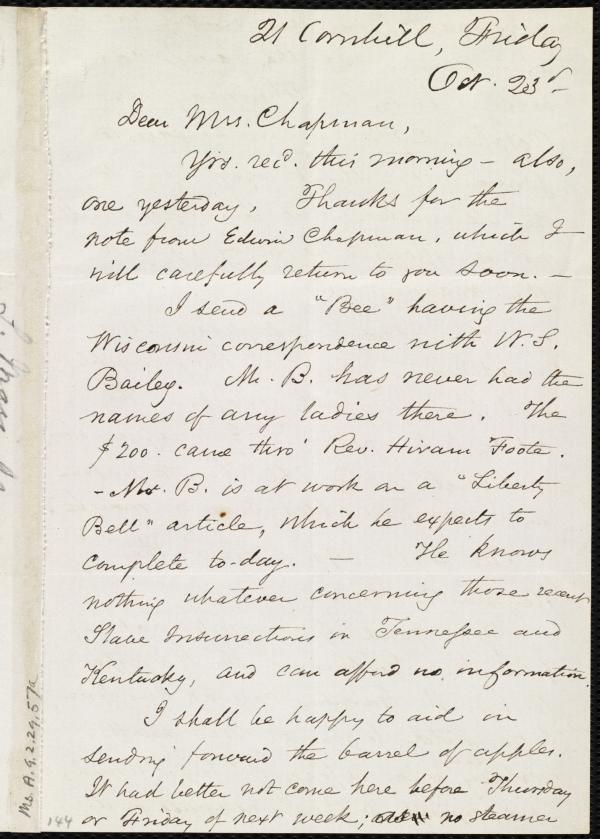 21 Cornhill, Friday
Oct. 23d –
Dear Mrs. Chapman,
Yrs. rec'd. this morning – also,
one yesterday. Thanks for the
note from Edwin Chapman, which I
will carefully return to you soon. –
I send a "Bee" having the
Wisconsin correspondence with W. S.
Bailey. Mr. B. has never had the
names of any ladies there. The
$200. came thro' Rev. Hiram Foote.
– Mr. B. is at work on a "Liberty
Bell" article, which he expects to
complete to-day. — He knows
nothing whatever concerning those recent
Slave Insurrections in Tennessee and
Kentucky, and can afford no information.
I shall be happy to aid in
sending forward the barrel of apples.
It had better not come here before Thursday
or Friday of next week; no steamer
Ms. A.9.2.29.57a
144